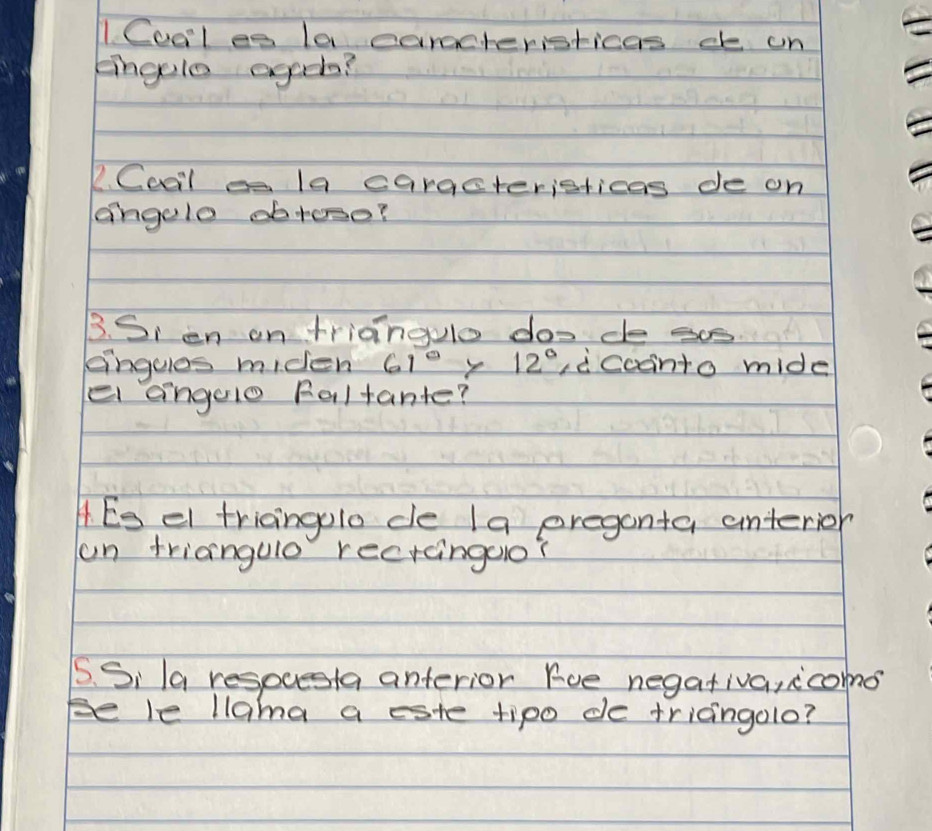 1. Cuál es la características de un
ángulo agudo?
2. Cuál es la características de un
ángulo obtuso?
3. Si en un triángulo dos de sus
ángulos miden 61° y 12°, ¿Cuánto mide
el ángulo faltante?
4 Es el triángulo de la pregunta anterior
un triángulo rectángulo?
5. Si la respuesta anterior fue negativa, ¿como
se le llama a este tipo de triángulo?